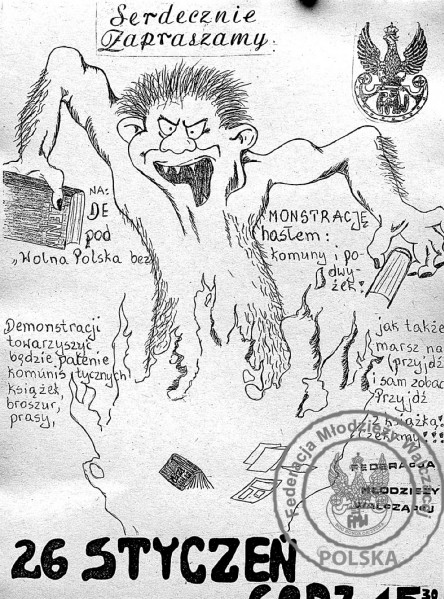 Serdecznie
Zapraszamy.
FMW
NA:
DE MONSTRACJĘ
pod hasłem:
„Wolna Polska bez komuny i po
dwy
żek!
Demonstracji
towarzyszyć
będzie palenie
komunistycznych
książek,
broszur,
prasy,
jak także
marsz na
(przyjdź
i sam zobac
Przyjdź
z książką!!
czekamy!!!
FEDERACJA
MŁODZIEŻY
WALCZĄCEJ
Federacja Młodzieży Walczącej
FMW
POLSKA
26 STYCZEŃ
GODZ 15 30